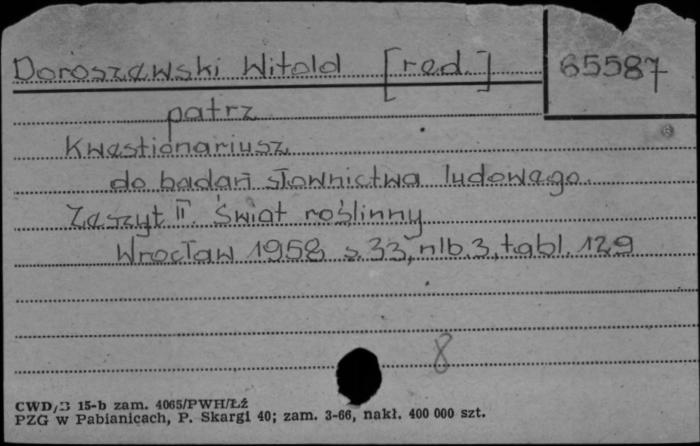 Doroszewski Witold [red.] 65587
patrz
Kwestionariusz
do badań słownictwa ludowego.
Zeszyt II. Świat roślinny
Wrocław 1958 s. 33, nlb. 3, tabl. 129
8
CWD/3 15-b zam. 4065/PWH/Łź
PZG w Pabianicach, P. Skargi 40; zam. 3-66, nakł. 400 000 szt.